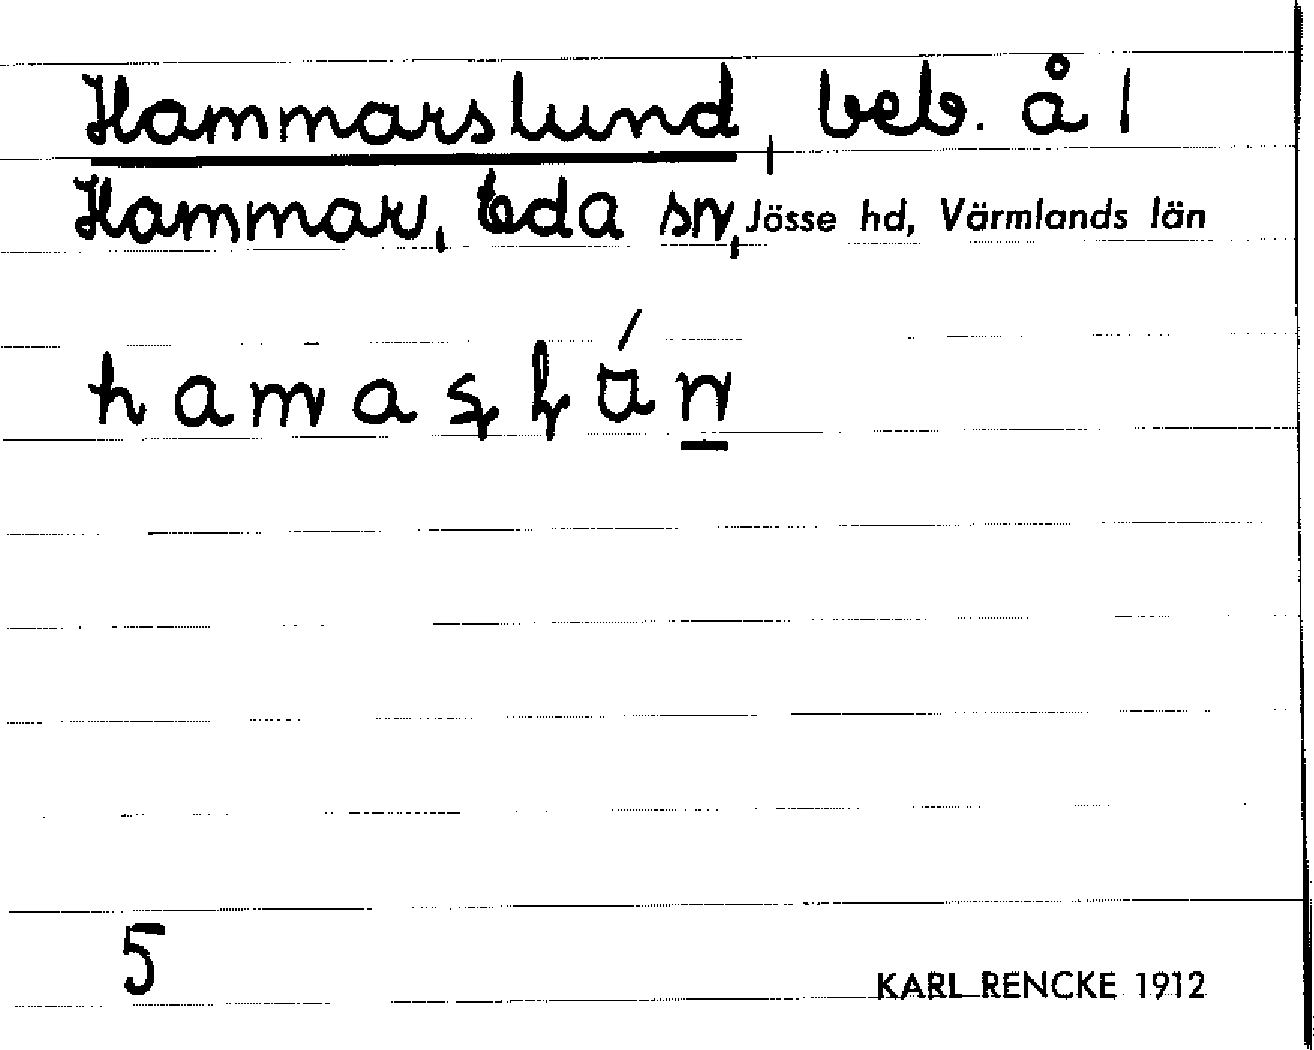 Hammarslund, beb. å 1
Hammar, Eda sn, Jösse hd, Värmlands län
5
KARL RENCKE 1912